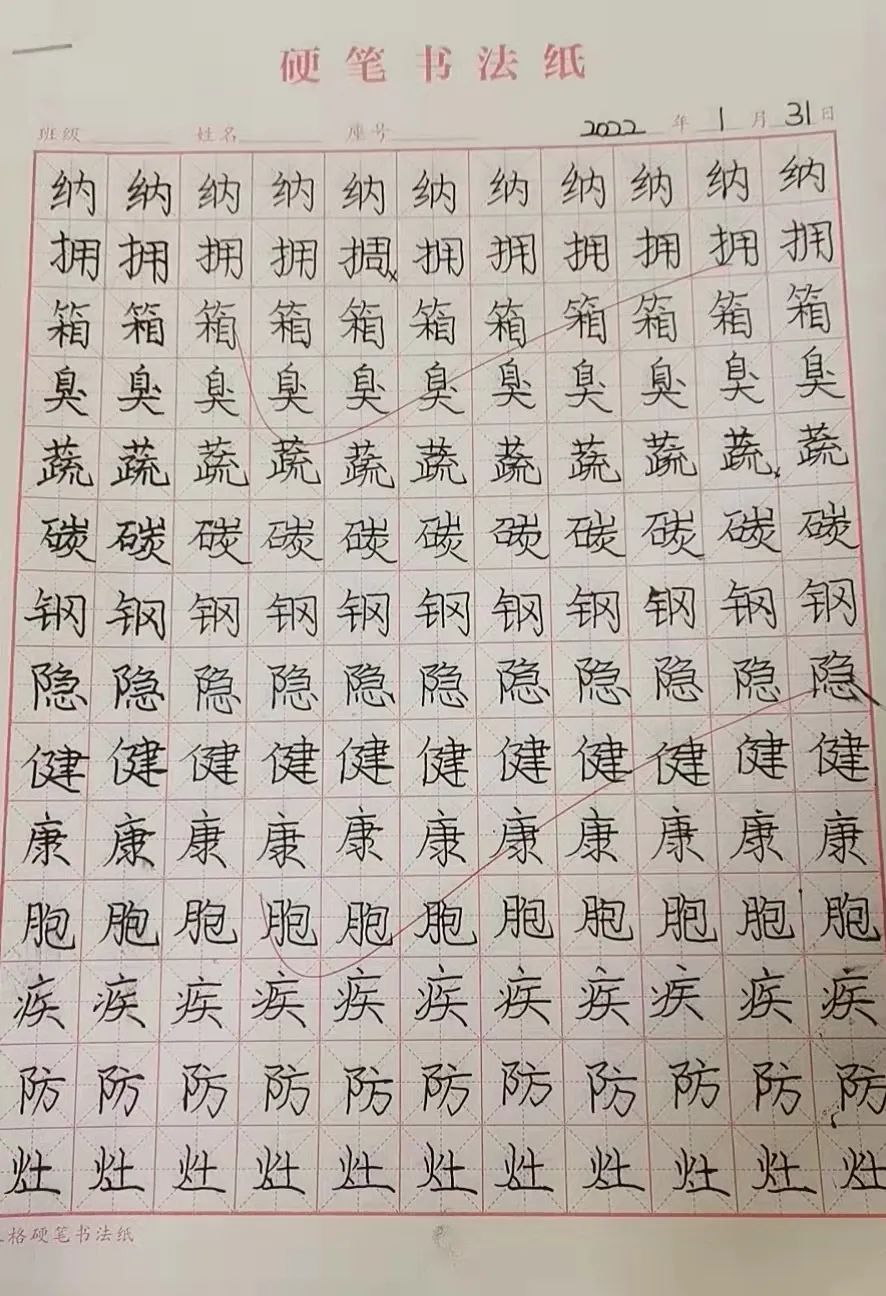 硬笔书法纸
班级 姓名 座号 2022年1月31日
纳纳纳纳纳纳纳纳纳纳纳
拥拥拥拥拥拥拥拥拥拥
箱箱箱箱箱箱箱箱箱箱箱
臭臭臭臭臭臭臭臭臭臭臭
蔬蔬蔬蔬蔬蔬蔬蔬蔬蔬蔬
碳碳碳碳碳碳碳碳碳碳碳
钢钢钢钢钢钢钢钢钢钢钢
隐隐隐隐隐隐隐隐隐隐隐
健健健健健健健健健健健
康康康康康康康康康康康
胞胞胞胞胞胞胞胞胞胞胞
疾疾疾疾疾疾疾疾疾疾疾
防防防防防防防防防防防
灶灶灶灶灶灶灶灶灶灶灶
格硬笔书法纸